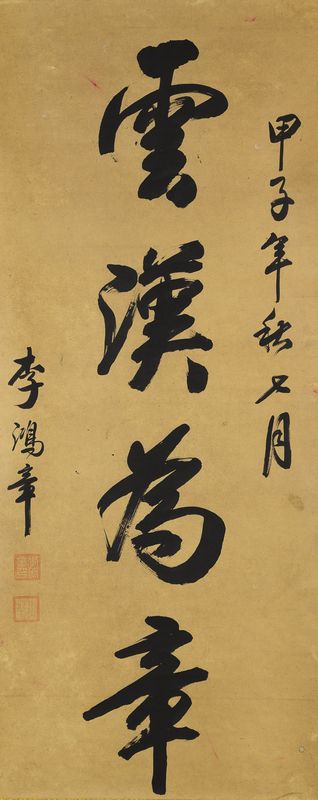 甲子年秋七月
雲漢為章
李鴻章